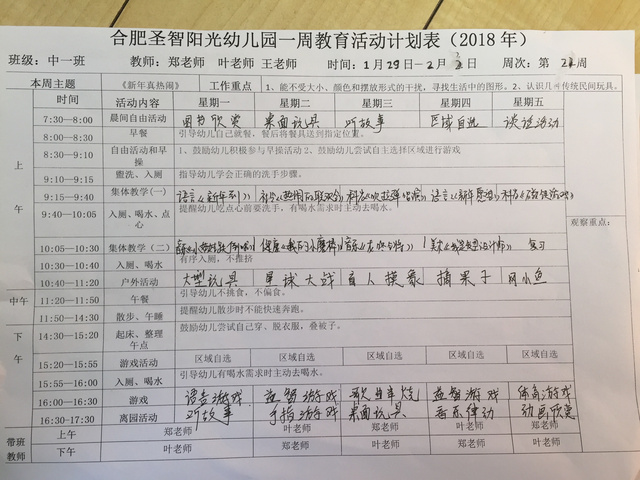 合肥圣智阳光幼儿园一周教育活动计划表（2018 年）
班级：中一班 教师：郑老师 叶老师 王老师 时间：1月29日-2月2日 周次：第 周
本周主题 《新年真热闹》 工作重点 1、能不受大小、颜色和摆放形式的干扰，寻找生活中的图形。2、认识几种传统民间玩具。
时间 活动内容 星期一 星期二 星期三 星期四 星期五
7:30—8:00 晨间自由活动 图书欣赏 桌面玩具 听故事 区域自选 谈话活动
8:00—8:30 早餐 引导幼儿自己就餐，餐后将餐具送到指定位置。
上午 8:30—9:10 自由活动和早操 1、鼓励幼儿积极参与早操活动 2、鼓励幼儿尝试自主选择区域进行游戏
9:10—9:15 盥洗、入厕 指导幼儿学会正确的洗手步骤。
9:15—9:40 集体教学(一) 语言《新年到》 科学 语言《新年愿望》
9:40—10:05 入厕、喝水、点心 提醒幼儿吃点心前要洗手，有喝水需求时主动去喝水。
观察重点：
10:05—10:30 集体教学（二） 健康 美术 复习
10:30—10:40 入厕、喝水 有序入厕，不推挤
10:40—11:20 户外活动 大型玩具 星球大战 盲人摸象 摘果子 网小鱼
中午 11:20—11:50 午餐 引导幼儿不挑食，不偏食。
11:50—14:30 散步、午睡 提醒幼儿散步时不能快速奔跑。
下午 14:30—15:20 起床、整理午点 鼓励幼儿尝试自己穿、脱衣服，叠被子。
15:20—15:55 游戏活动 区域自选 区域自选 区域自选 区域自选 区域自选
15:55—16:00 入厕、喝水 引导幼儿有喝水需求时主动去喝水。
16:00—16:30 游戏 语言游戏 益智游戏 益智游戏 体育游戏
16:30-17:30 离园活动 听故事 手指游戏 桌面玩具 音乐律动 动画欣赏
带班教师 上午 郑老师 叶老师 郑老师 叶老师 郑老师
下午 叶老师 郑老师 叶老师 郑老师 叶老师